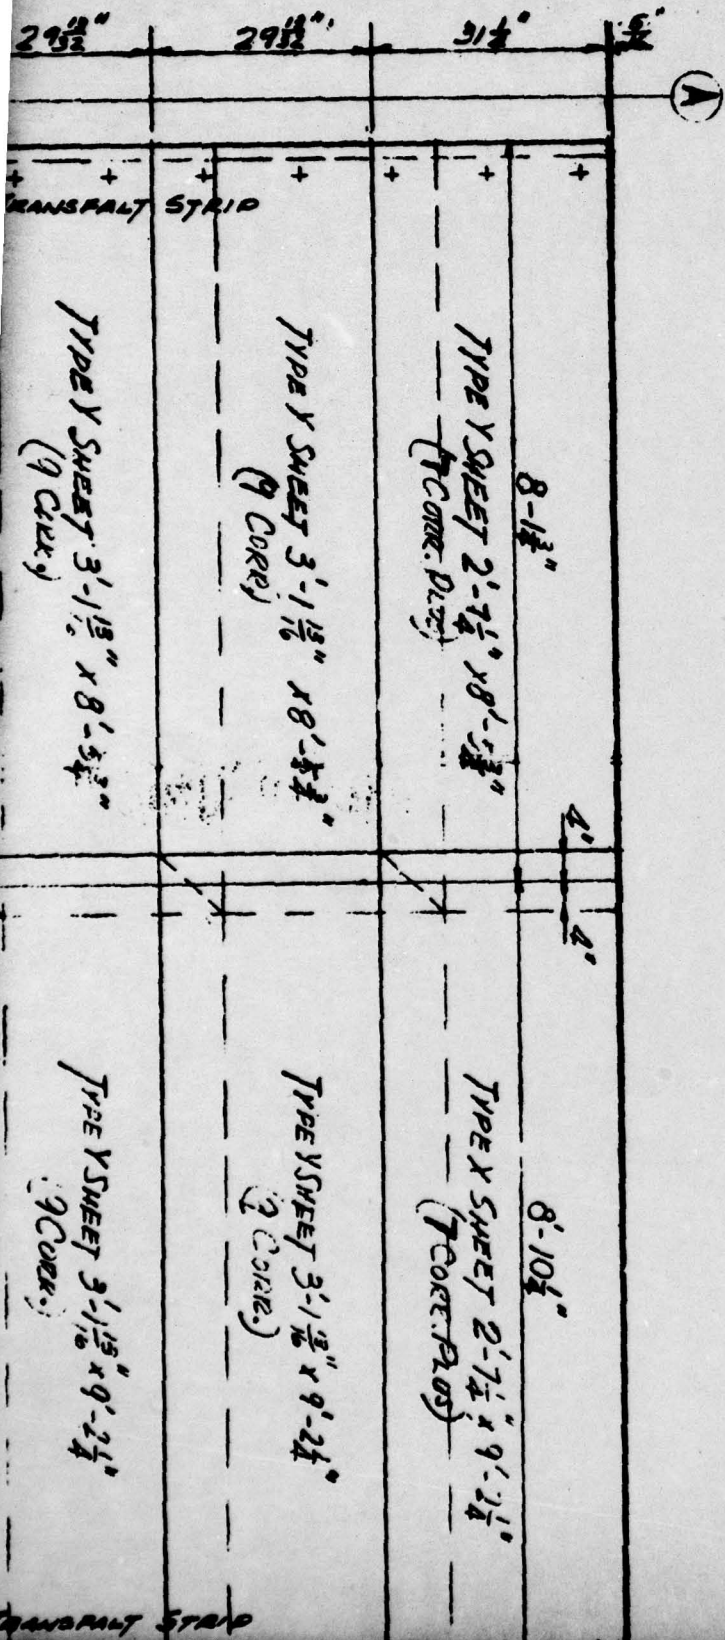 29 13/32"
29 13/32"
31 1/4"
A
TRANSFALT STRIP
TYPE Y SHEET 3'-1 13/16" x 8'-5 3/4"
(9 CORR.)
TYPE Y SHEET 3'-1 13/16" x 8'-5 3/4"
(9 CORR.)
TYPE Y SHEET 2'-7 1/4" x 8'-5 3/4"
(7 CORR. PLUS)
8'-1 3/4"
4"
4"
TYPE Y SHEET 3'-1 13/16" x 9'-2 1/4"
(9 CORR.)
TYPE Y SHEET 3'-1 13/16" x 9'-2 1/4"
(9 CORR.)
TYPE X SHEET 2'-7 1/4" x 9'-2 1/4"
(7 CORR. PLUS)
8'-10 1/4"
TRANSFALT STRIP